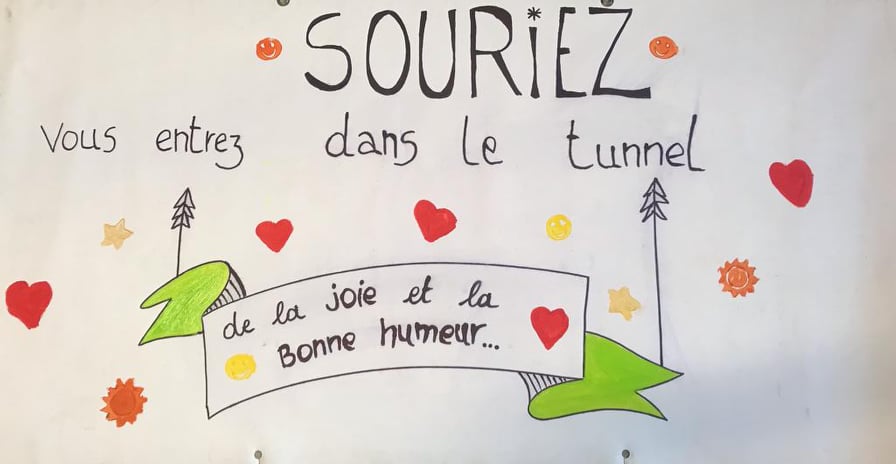 SOURiEZ
Vous entrez dans le tunnel
de la joie et la
Bonne humeur...